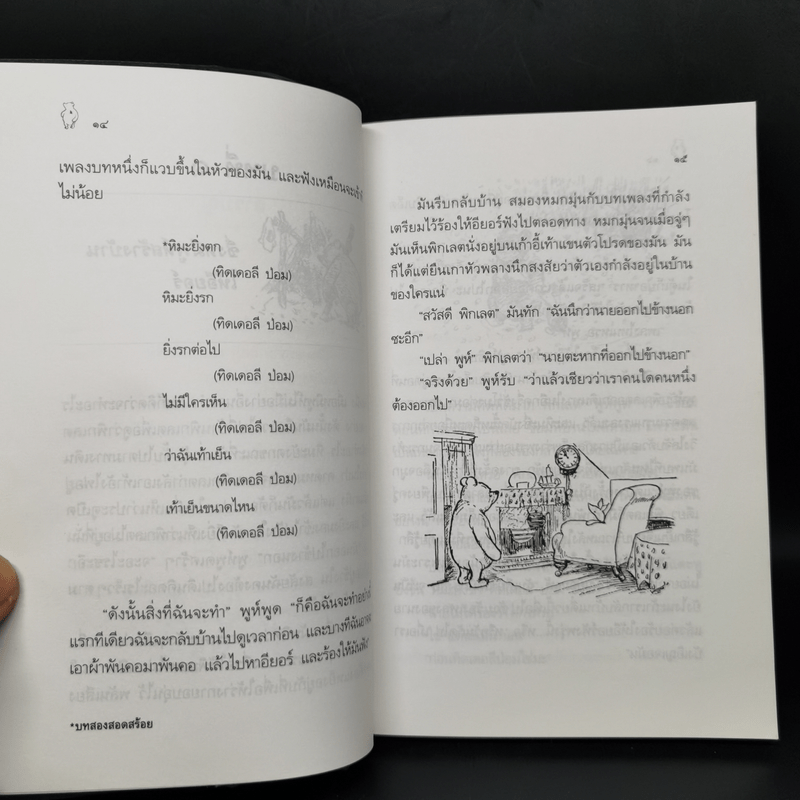 ๑๔
เพลงบทหนึ่งก็แวบขึ้นในหัวของมัน และฟังเหมือนจะเข้า
ไม่น้อย
*หิมะยิ่งตก
(ทิดเดอลี ปอม)
หิมะยิ่งรก
(ทิดเดอลี ปอม)
ยิ่งรกต่อไป
(ทิดเดอลี ปอม)
ไม่มีใครเห็น
(ทิดเดอลี ปอม)
ว่าฉันเท้าเย็น
(ทิดเดอลี ปอม)
เท้าเย็นขนาดไหน
(ทิดเดอลี ปอม)
“ดังนั้นสิ่งที่ฉันจะทำ” พูห์พูด “ก็คือฉันจะทำอย่างนี้
แรกทีเดียวฉันจะกลับบ้านไปดูเวลาก่อน และบางทีฉัน
เอาผ้าพันคอมาพันคอ แล้วไปหาอียอร์ และร้องให้มันฟัง”
*บทสองสอดสร้อย
๑๕
มันรีบกลับบ้าน สมองหมกมุ่นกับบทเพลงที่กำลัง
เตรียมไว้ร้องให้อียอร์ฟังไปตลอดทาง หมกมุ่นจนเมื่อจู่ๆ
มันเห็นพิกเลตนั่งอยู่บนเก้าอี้เท้าแขนตัวโปรดของมัน มัน
ก็ได้แต่ยืนเกาหัวพลางนึกสงสัยว่าตัวเองกำลังอยู่ในบ้าน
ของใครแน่
“สวัสดี พิกเลต” มันทัก “ฉันนึกว่านายออกไปข้างนอก
ซะอีก”
“เปล่า พูห์” พิกเลตว่า “นายตะหากที่ออกไปข้างนอก”
“จริงด้วย” พูห์รับ “ว่าแล้วเชียวว่าเราคนใดคนหนึ่ง
ต้องออกไป”